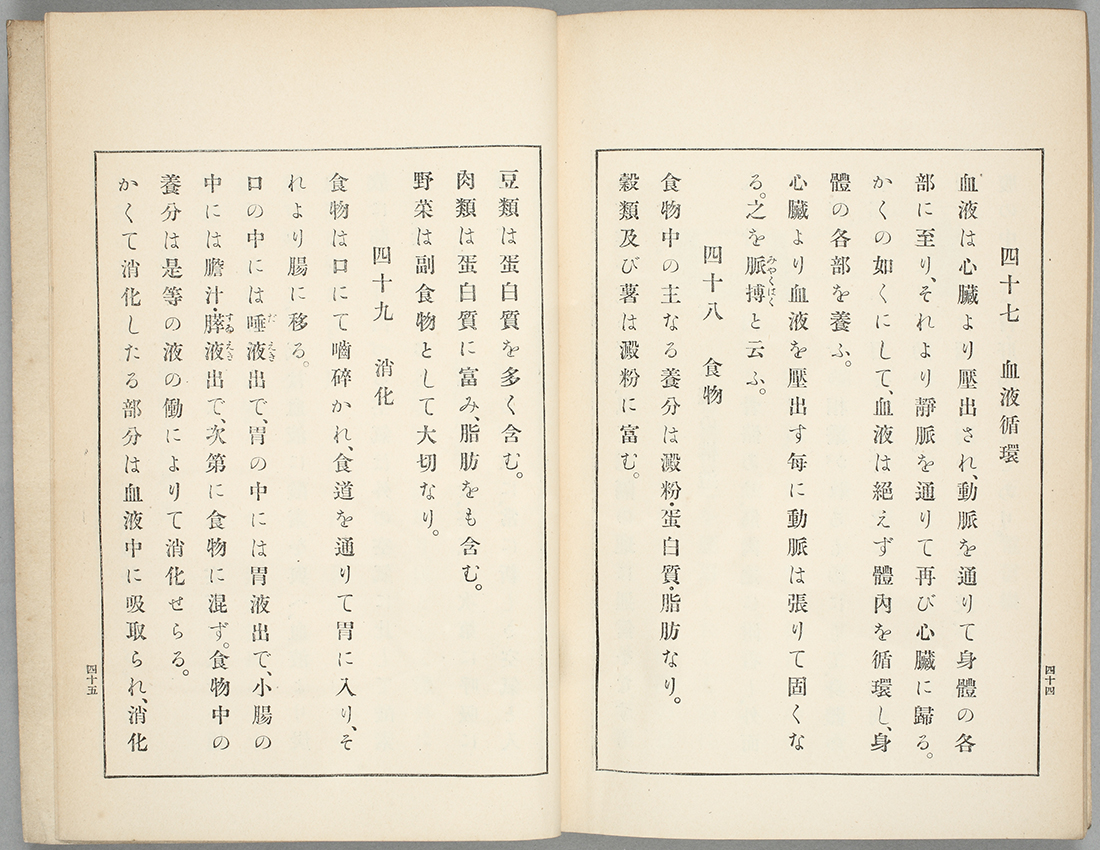 四十七　血液循環
血液は心臟より壓出され、動脈を通りて身體の各
部に至り、それより靜脈を通りて再び心臟に歸る。
かくの如くにして、血液は絕えず體內を循環し、身
體の各部を養ふ。
心臟より血液を壓出す每に動脈は張りて固くな
る。之を脈搏と云ふ。
みやくはく
四十八　食物
食物中の主なる養分は澱粉・蛋白質・脂肪なり。
穀類及び薯は澱粉に富む。
四十四
豆類は蛋白質を多く含む。
肉類は蛋白質に富み、脂肪をも含む。
野菜は副食物として大切なり。
四十九　消化
食物は口にて嚙碎かれ、食道を通りて胃に入り、そ
れより腸に移る。
口の中には唾液出で、胃の中には胃液出で、小腸の
だえき
中には膽汁・膵液出で、次第に食物に混ず。食物中の
すゐえき
養分は是等の液の働によりて消化せらる。
かくて消化したる部分は血液中に吸取られ、消化
四十五